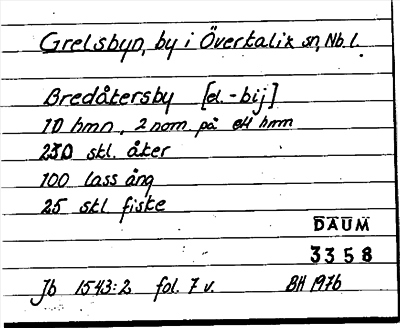 Grelsbyn, by i Överkalix sn, Nb. l.
Bredåkersby [el. -bij]
10 hmn, 2 nom. på ett hmn
230 skl. åker
100 lass äng
25 skl fiske
DAUM
3358
Jb 1543:2 fol. 7 v. BH 1976